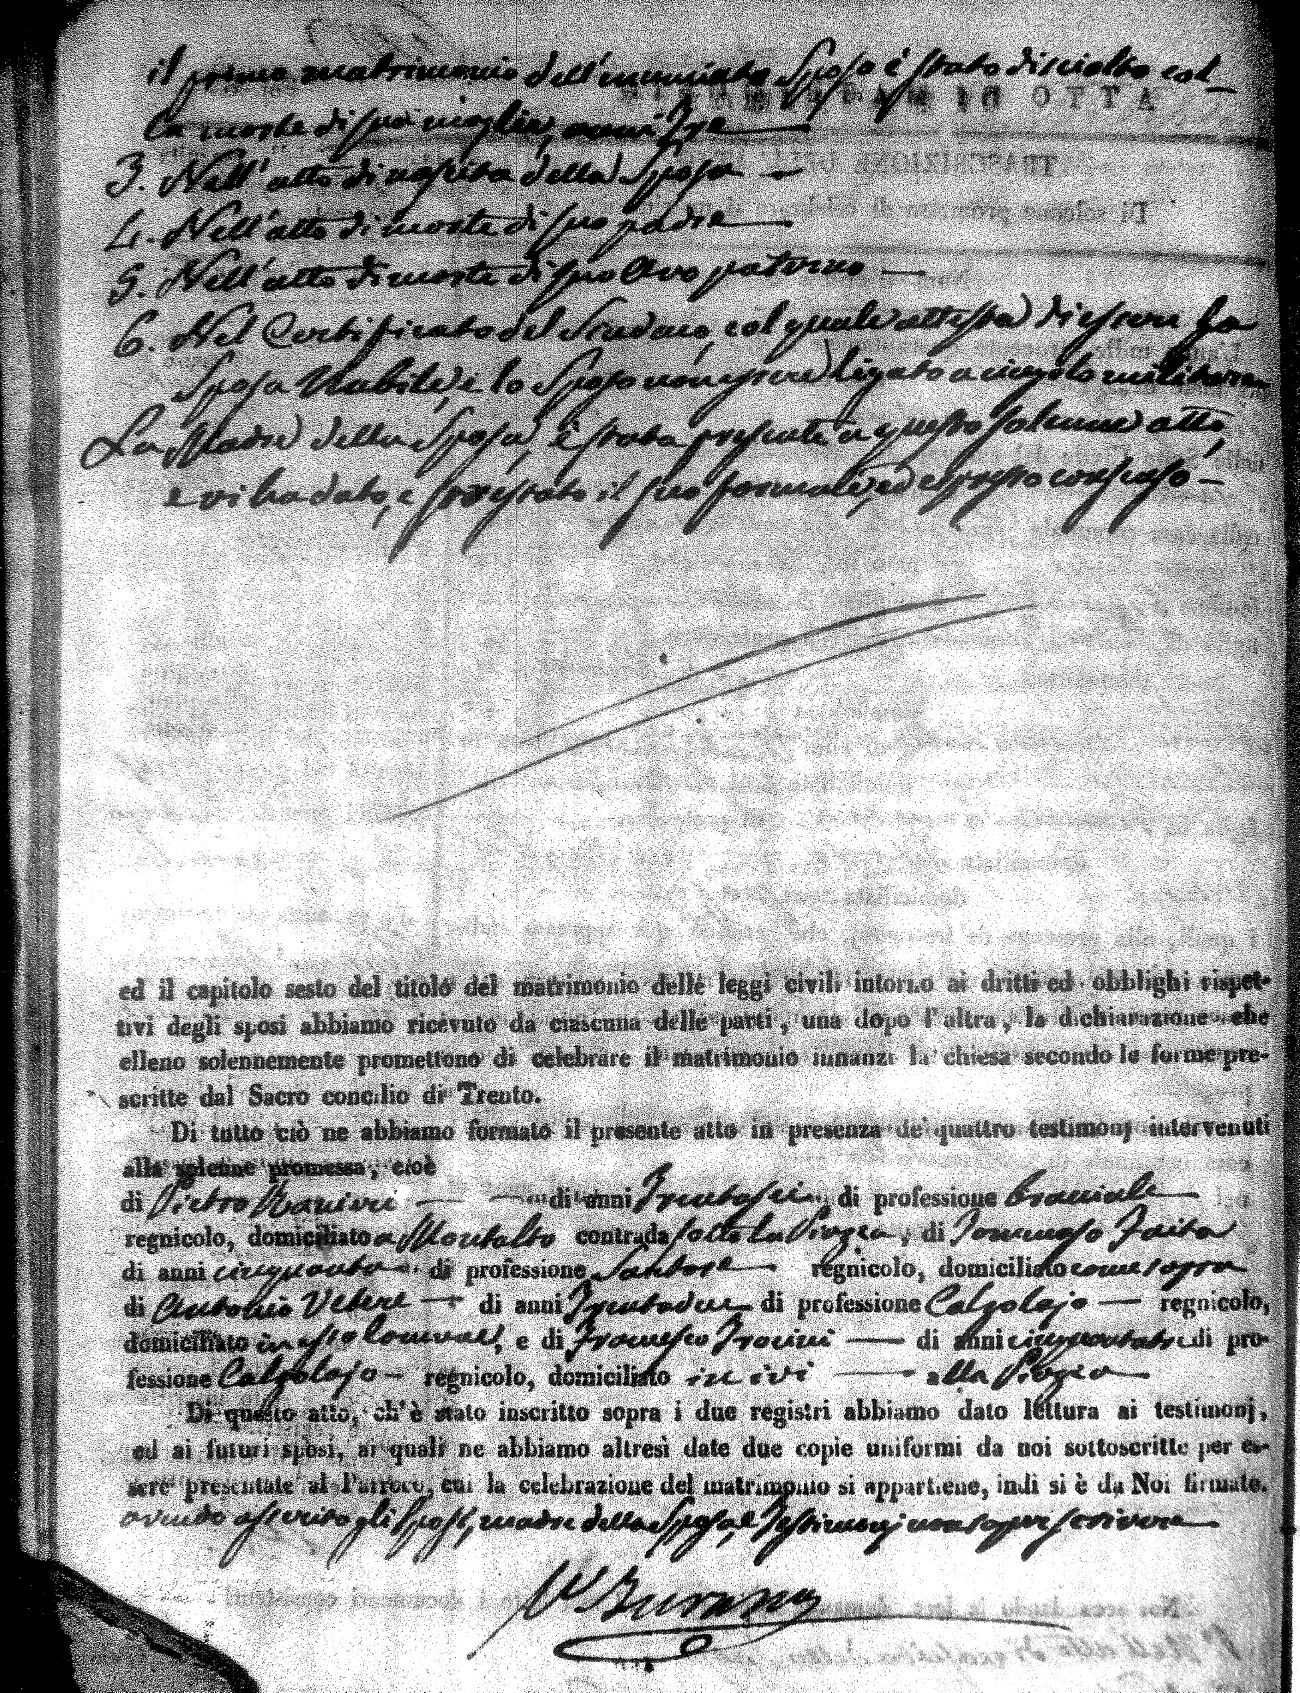 il primo matrimonio dell'enunciato Sposo è stato disciolto col-
la morte di sua moglie,
3. Nell'atto di nascita della Sposa —
4. Nell'atto di morte di suo padre —
5. Nell'atto di morte di suo Avo paterno —
6. Nel Certificato del Sindaco, col quale attesta di essere la
Sposa Nubile, e lo Sposo non essere ligato a cingolo militare
La Madre della Sposa, è stata presente a questo solenne atto,
e vi ha dato, e prestato il suo formale, ed espresso consenso —
ed il capitolo sesto del titolo del matrimonio delle leggi civili intorno ai dritti ed obblighi rispet-
tivi degli sposi abbiamo ricevuto da ciascuna delle parti, una dopo l'altra, la dichiarazione che
elleno solennemente promettono di celebrare il matrimonio innanzi la chiesa secondo le forme pre-
scritte dal Sacro concilio di Trento.
Di tutto ciò ne abbiamo formato il presente atto in presenza de' quattro testimonj intervenuti
alla solenne promessa, cioè
di Pietro — di anni Trentasei, di professione braciale —
regnicolo, domiciliato a Montalto contrada sotto la Piazza, di Tommaso Faita
di anni cinquanta di professione Sartore — regnicolo, domiciliato come sopra
di Antonio Vetere — di anni Trentadue di professione Calzolajo — regnicolo,
domiciliato in esso Comune, e di Francesco — di anni cinquantatre di pro-
fessione Calzolajo — regnicolo, domiciliato in ivi — alla Piazza —
Di questo atto, ch'è stato inscritto sopra i due registri abbiamo dato lettura ai testimonj,
ed ai futuri sposi, ai quali ne abbiamo altresì date due copie uniformi da noi sottoscritte per es-
sere presentate al Parroco, cui la celebrazione del matrimonio si appartiene, indi si è da Noi firmato.
avendo asserito gli Sposi, madre della Sposa, e Testimonj non sapere scrivere —